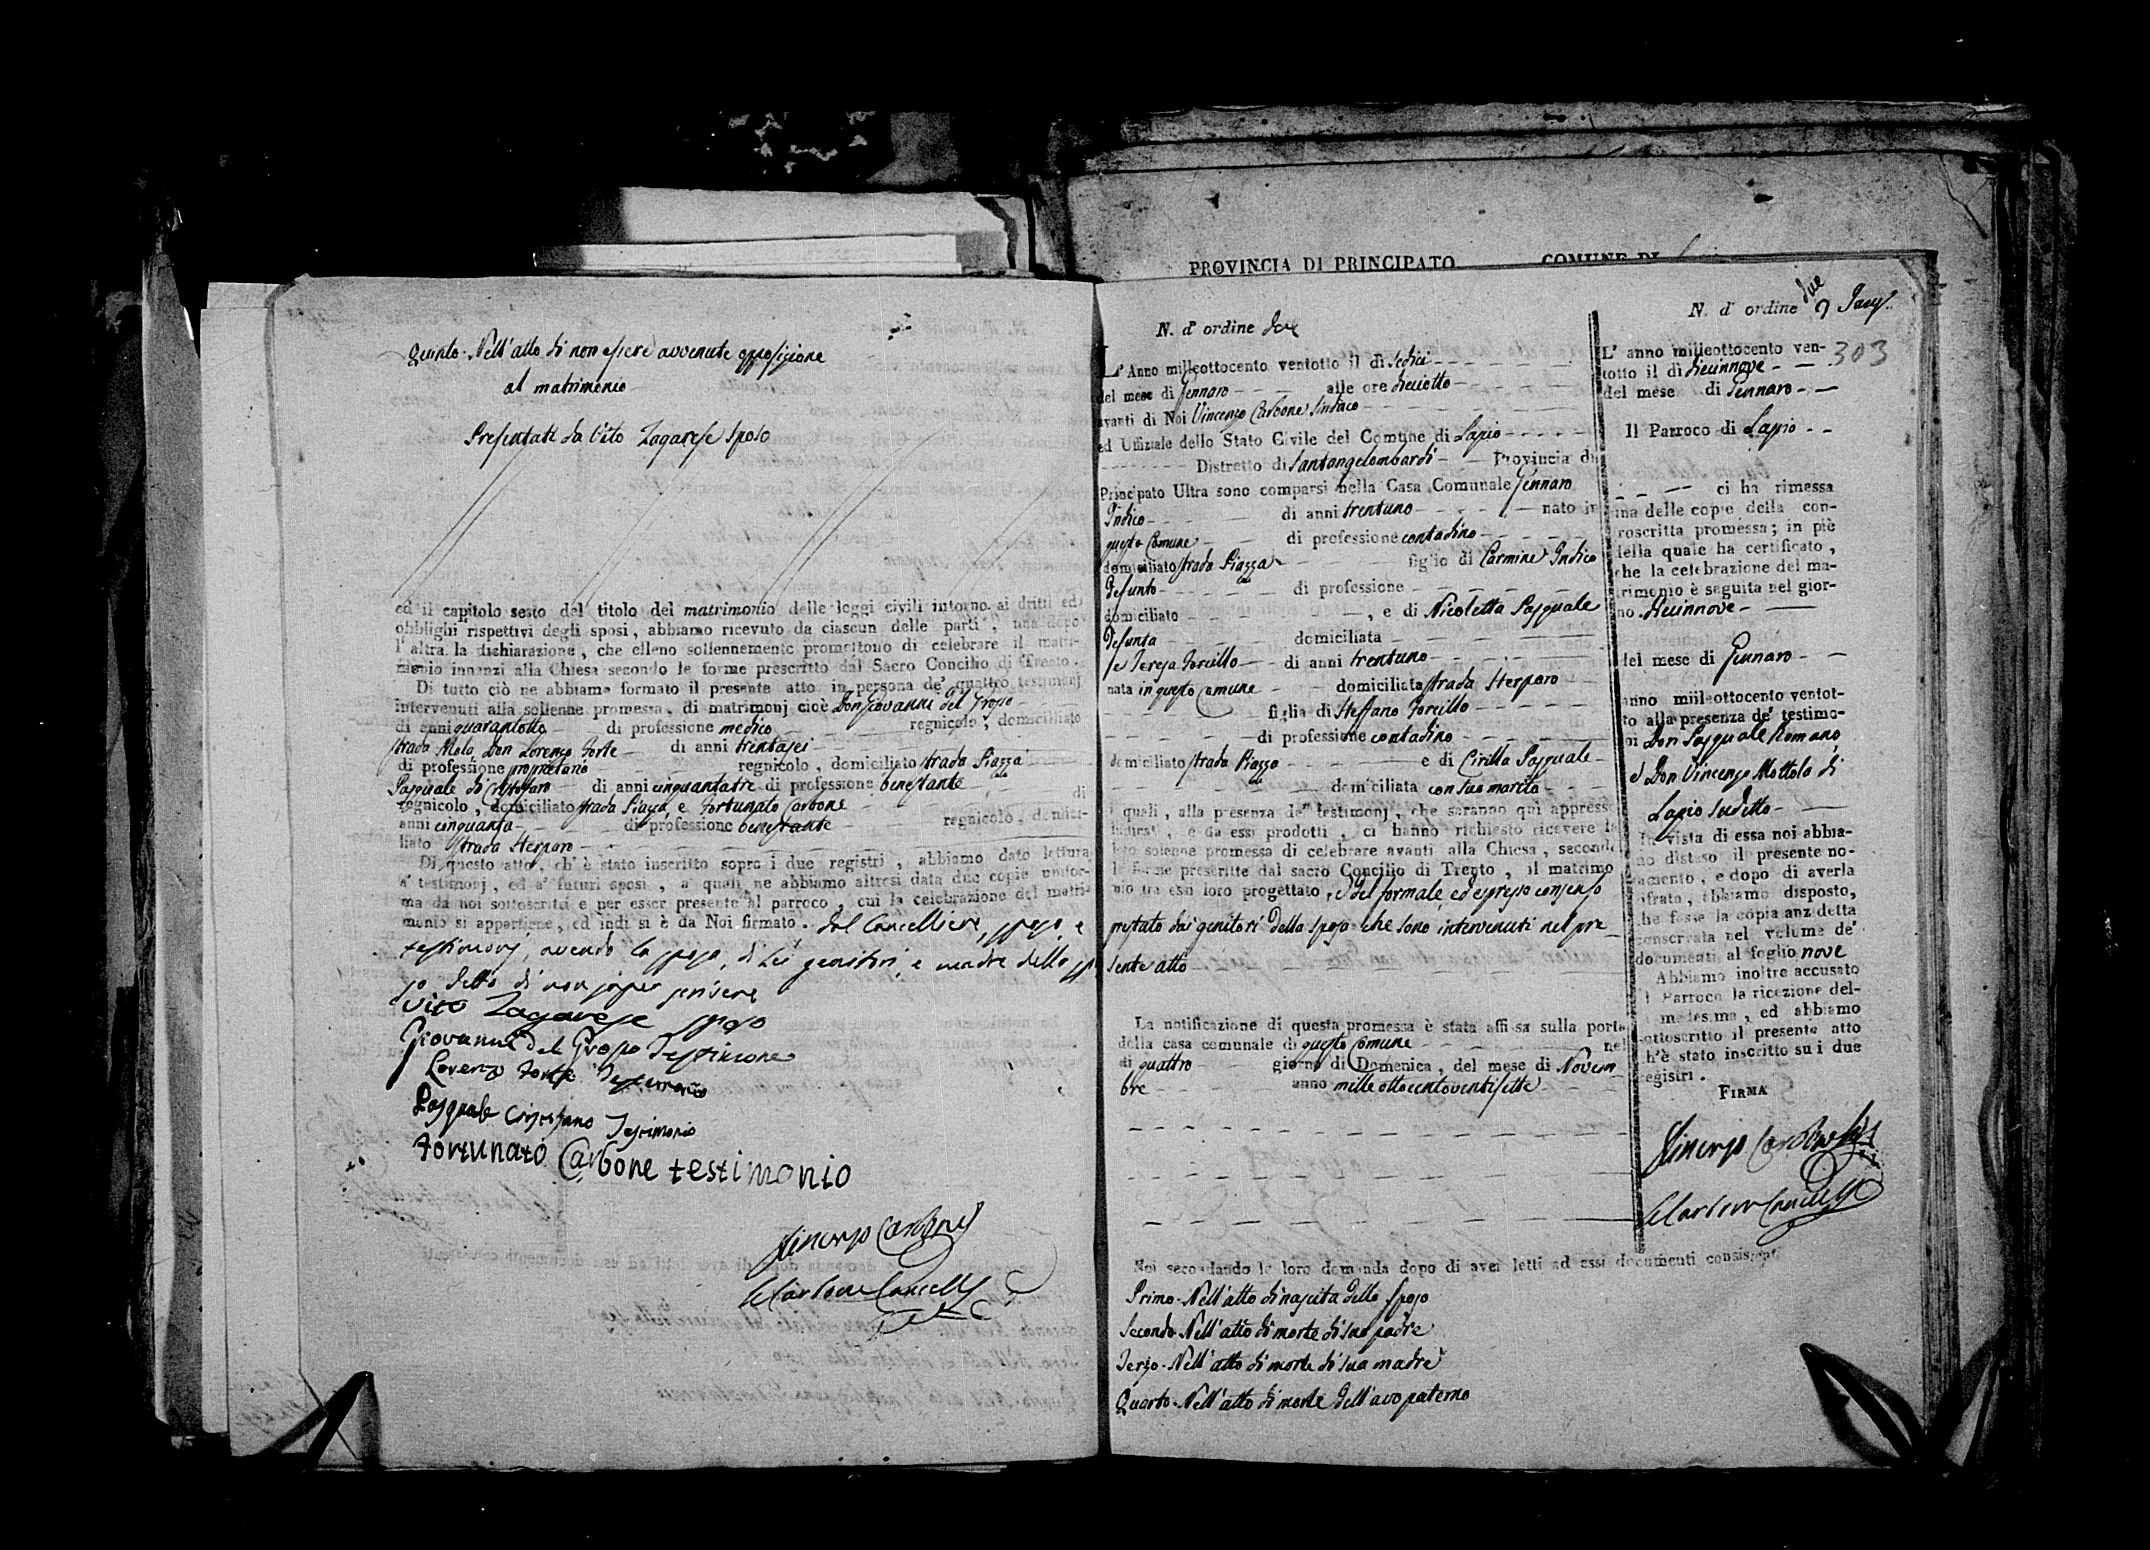 Quinto. Nell'atto di non essere avvenute opposizione
al matrimonio
Presentati da Vito Zagarese sposo
ed il capitolo sesto del titolo del matrimonio delle leggi civili intorno ai dritti ed
obblighi rispettivi degli sposi, abbiamo ricevuto da ciascun delle parti, una dopo
l'altra la dichiarazione, che elleno sollennemente promettono di celebrare il matri-
monio innanzi alla Chiesa secondo le forme prescritto dal Sacro Concilio di Trento.
Di tutto ciò ne abbiamo formato il presente atto in persona de' quattro testimonj
intervenuti alla sollenne promessa, di matrimonj cioè Don Giovanni del Grosso
di anni quarantotto di professione medico regnicolo, domiciliato
strada Mola, Don Lorenzo Forte di anni trentasei
di professione proprietario regnicolo, domiciliato strada Piazza
Pasquale di Cristofano di anni cinquantatre di professione benestante
regnicolo, domiciliato strada Piazza, e Fortunato Carbone di
anni cinquanta di professione benestante regnicolo, domici-
liato strada Sterparo
Di questo atto, ch' è stato inscritto sopra i due registri, abbiamo dato lettura
a' testimonj, ed a' futuri sposi, a' quali ne abbiamo altresì data due copie unifor-
ma da noi sottoscritti e per esser presente al parroco, cui la celebrazione del matri-
monio si appartiene, ed indi si è da Noi firmato. dal Cancelliere, sposo, e
testimonj, avendo la sposa, di lei genitori, e madre dello spo
so detto di non saper scrivere
Vito Zagarese sposo
Giovanni del Grosso Testimone
Lorenzo Forte Testimonio
Pasquale Cristofano Testimonio
Fortunato Carbone testimonio
Vincenzo Carbone
Carbone Cancell
PROVINCIA DI PRINCIPATO COMUNE DI
N. d' ordine due
L'Anno milleottocento ventotto il dì sedici
del mese di Gennaro alle ore dieciotto
avanti di Noi Vincenzo Carbone Sindaco
ed Uffiziale dello Stato Civile del Comune di Lapio
Distretto di Santangelombardi Provincia di
Principato Ultra sono comparsi nella Casa Comunale Gennaro
Indico di anni trentuno nato in
questo Comune di professione contadino
domiciliato strada Piazza figlio di Carmine Indico
defunto di professione
domiciliato , e di Nicoletta Pasquale
defunta domiciliata
e Teresa Forcillo di anni trentuno
nata in questo Comune domiciliata strada Sterparo
figlia di Steffano Forcillo
di professione contadino
domiciliato strada Piazza e di Cirilla Pasquale
domiciliata con suo marito
i quali, alla presenza de' testimonj, che saranno quì appress
indicati, e da essi prodotti, ci hanno richiesto ricevere la
loro solenne promessa di celebrare avanti alla Chiesa, secondo
le forme prescritte dal sacro Concilio di Trento, il matrimo
nio tra essi loro progettato, e del formale, ed espresso consenso
prestato dai genitori della sposa che sono intervenuti nel pre_
sente atto
La notificazione di questa promessa è stata affissa sulla porta
della casa comunale di questo Comune nel
di quattro giorno di Domenica, del mese di Novem
bre anno mille ottocentoventisette
Noi secondando le loro domanda dopo di aver letti ad essi documenti consistenti
Primo. Nell'atto di nascita dello sposo
Secondo. Nell'atto di morte di suo padre
Terzo. Nell'atto di morte di sua madre
Quarto. Nell'atto di morte dell'avo paterno
N. d' ordine due
303
L' anno milleottocento ven-
totto il dì diecinnove
del mese di Gennaro
Il Parroco di Lapio
ci ha rimessa
una delle copie della con-
troscritta promessa; in piè
della quale ha certificato,
che la celebrazione del ma-
trimonio è seguita nel gior-
no diecinnove
del mese di Gennaro
anno milleottocento ventot-
to alla presenza de' testimo-
ni Don Pasquale Romano
e Don Vincenzo Mottola di
Lapio sudetto
In vista di essa noi abbia-
mo disteso il presente no-
tamento, e dopo di averla
cifrata, abbiamo disposto,
che fosse la copia anzidetta
conservata nel volume de'
documenti al foglio nove
Abbiamo inoltre accusato
al Parroco la ricezione del-
la medesima, ed abbiamo
sottoscritto il presente atto
ch'è stato inscritto su i due
registri.
FIRMA
Vincenzo Carbone
Carbone Cancell